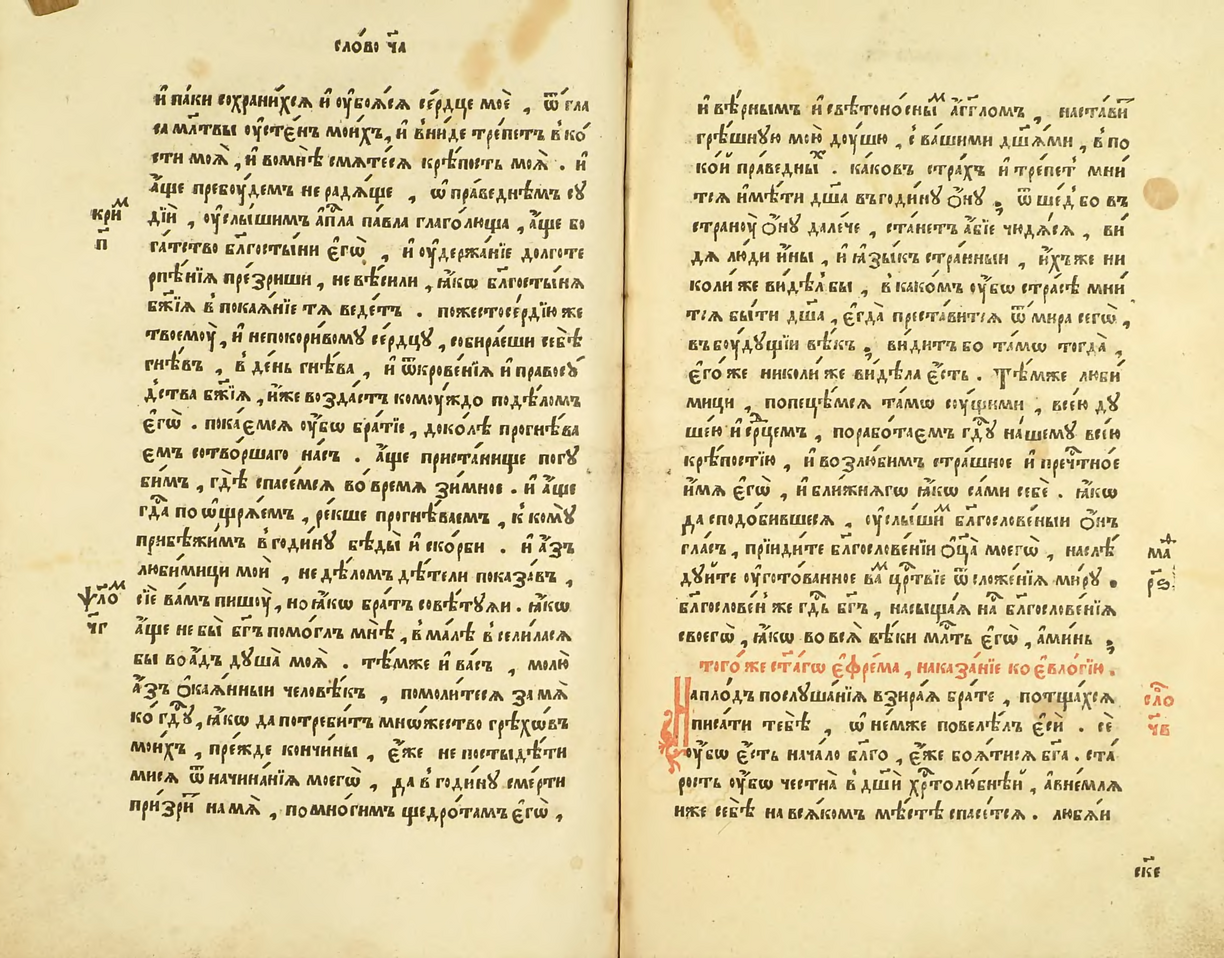 сло́во ч҃а
и҆ па́ки сохрани́хсѧ и҆ оу҆боѧ́сѧ се́рдце моѐ , ѿ гла
са мл҃твы оу҆сте́нъ мои́хъ, и҆ вни́де тре́петъ в ко́
сти моѧ̀ , и҆ во мнѣ̀ смѧте́сѧ крѣ́пость моѧ̀ . и҆
а҆́ще пребоу́демъ не радѧ́ще , ѡ пра́веднѣмъ сꙋ
ри́м
п҃
ді́и , оу҆слы́шимъ а҆пⷭ҇ла па́вла глаго́люща , а҆́ще бо
га́тство бл҃госты́ни є҆гѡ̀ , и҆ оу҆держа́нїе долготе
рпѣ́нїѧ пре́зриши , не вѣ́си ли , ꙗ҆́кѡ бл҃госты́нѧ
бж҃їѧ в покаѧ́нїе тѧ веде́тъ . по жестосе́рдїю же
твоемоу̀ , и҆ непокори́вому се́рдцꙋ , собира́еши себѣ̀
гнѣ́въ , в де́нь гнѣ́ва , и҆ ѿкрове́нїѧ и҆ правосꙋ́
дства бж҃їѧ , и҆́же возда́стъ комоу́ждо по дѣ́ломъ
є҆гѡ̀ . пока́емсѧ оу҆̀бѡ бра́тїе , доко́лѣ прогнѣ́ва
емъ сотво́ршаго на́съ . а҆́ще приста́нище погꙋ́
бимъ , гдѣ̀ спасе́мсѧ во вре́мѧ зи́мное . и҆ а҆́ще
гдⷭ҇а по ѡ҆щрѧ́емъ , ре́кше прогнѣ́ваемъ , к комꙋ̀
прибѣ́жимъ в годи́нꙋ бѣ́ды и҆ ско́рби . и҆ а҆́зъ
люби́мици мои̂ , не дѣ́ломъ дѣ́тели показа́въ ,
ѱло́м
ч҃г
сїѐ ва́мъ пишоу̀ , но ꙗ҆́кѡ бра́тъ совѣ́тꙋѧи . ꙗ҆́кѡ
а҆́ще не бы̀ бг҃ъ помо́глъ мнѣ̀ , в ма́лѣ всели́ласѧ
бы во а҆́дъ дꙋша̀ моѧ̀ . тѣ́мже и҆ ва́съ , молю̀
а҆́зъ ѻ҆каѧ́нныи человѣ́къ , помоли́тесѧ за мѧ̀
ко гдⷭ҇ꙋ , ꙗ҆́кѡ да потреби́тъ мно́жество грѣхѡ́въ
мои́хъ , пре́жде кончи́ны , є҆́же не постыдѣ́ти
мисѧ ѿ начина́нїѧ моегѡ̀ , да в годи́нꙋ сме́рти
при́зрит на мѧ̀ , по мно́гимъ щедро́тамъ є҆гѡ̀ ,
и҆ вѣ́рнымъ и҆ свѣтоно́снымъ а҆́гг҃ломъ , наста́вит
грѣ́шнꙋю мою̀ доу́шю , с ва́шими дш҃а́ми , в по
ко́й пра́ведных . како́въ стра́хъ и҆ тре́петъ мни́
тсѧ и҆мѣ́ти дш҃а в годи́нꙋ ѻ҆́нꙋ ; ѿше́д бо въ
страноу̀ ѻ҆́нꙋ дале́че , ста́нетъ а҆́бїе чюдѧ́сѧ , ви́
дѧ лю́ди и҆́ны , и҆ ꙗ҆зы́къ стра́нныи , и҆́хъже ни
коли́же ви́дѣл бы , в како́мъ оу҆̀бѡ стра́сѣ мни́
тсѧ бы́ти дш҃а , є҆гда̀ преста́витсѧ ѿ ми́ра сегѡ̀ ,
въ боу́дꙋщїи вѣ́къ ; ви́дитъ бо та́мѡ тогда̀ ,
є҆го́же николи́же ви́дѣла є҆́сть . Тѣ́мже люби́
мици , попеце́мсѧ та́мѡ соу́щими , все́ю дꙋ
ше́ю и҆ срⷣцемъ , порабо́таемъ гдⷭ҇ꙋ на́шемꙋ все́ю
крѣ́постїю , и҆ возлю́бимъ стра́шное и҆ пречⷭ҇тное
и҆́мѧ є҆гѡ̀ , и҆ бли́жнѧгѡ ꙗ҆́кѡ са́ми себѐ . ꙗ҆́кѡ
да сподо́бившесѧ , оу҆слы́шим бл҃гослове́ныи ѻ҆́нъ
гла́съ , прїиди́те бл҃гослове́нїи ѻ҆ц҃а̀ моегѡ̀ , наслѣ́
маⷴ
р҃ѕ
дꙋите оу҆гото́ванное вам црⷭ҇твїе ѿ сложе́нїѧ ми́рꙋ .
бл҃гослове́н же гдⷭ҇ь бг҃ъ , насыща́ѧ на́с бл҃гослове́нїѧ
своегѡ̀ , ꙗ҆́кѡ во всѧ̀ вѣ́ки млⷭ҇ть є҆гѡ̀ , а҆ми́нь ;
того́же ст҃а́гѡ є҆фре́ма , наказа́нїе ко є҆vло́гїю .
сло́
ч҃в
На пло́дъ послꙋша́нїѧ взира́ѧ бра́те , потща́хсѧ
писа́ти тебѣ̀ , ѡ не́мже повелѣ́лъ є҆сѝ . сѐ
оу҆̀бѡ є҆́сть нача́ло бл҃го , є҆́же боѧ́тисѧ бг҃а . ста́
рость оу҆̀бѡ честна̀ в дш҃и хрⷭ҇толюбнѣ́й , а҆ вне́млѧ
иже себѣ̀ на всѧ́комъ мѣ́стѣ спасе́тсѧ . любѧ́и
ске